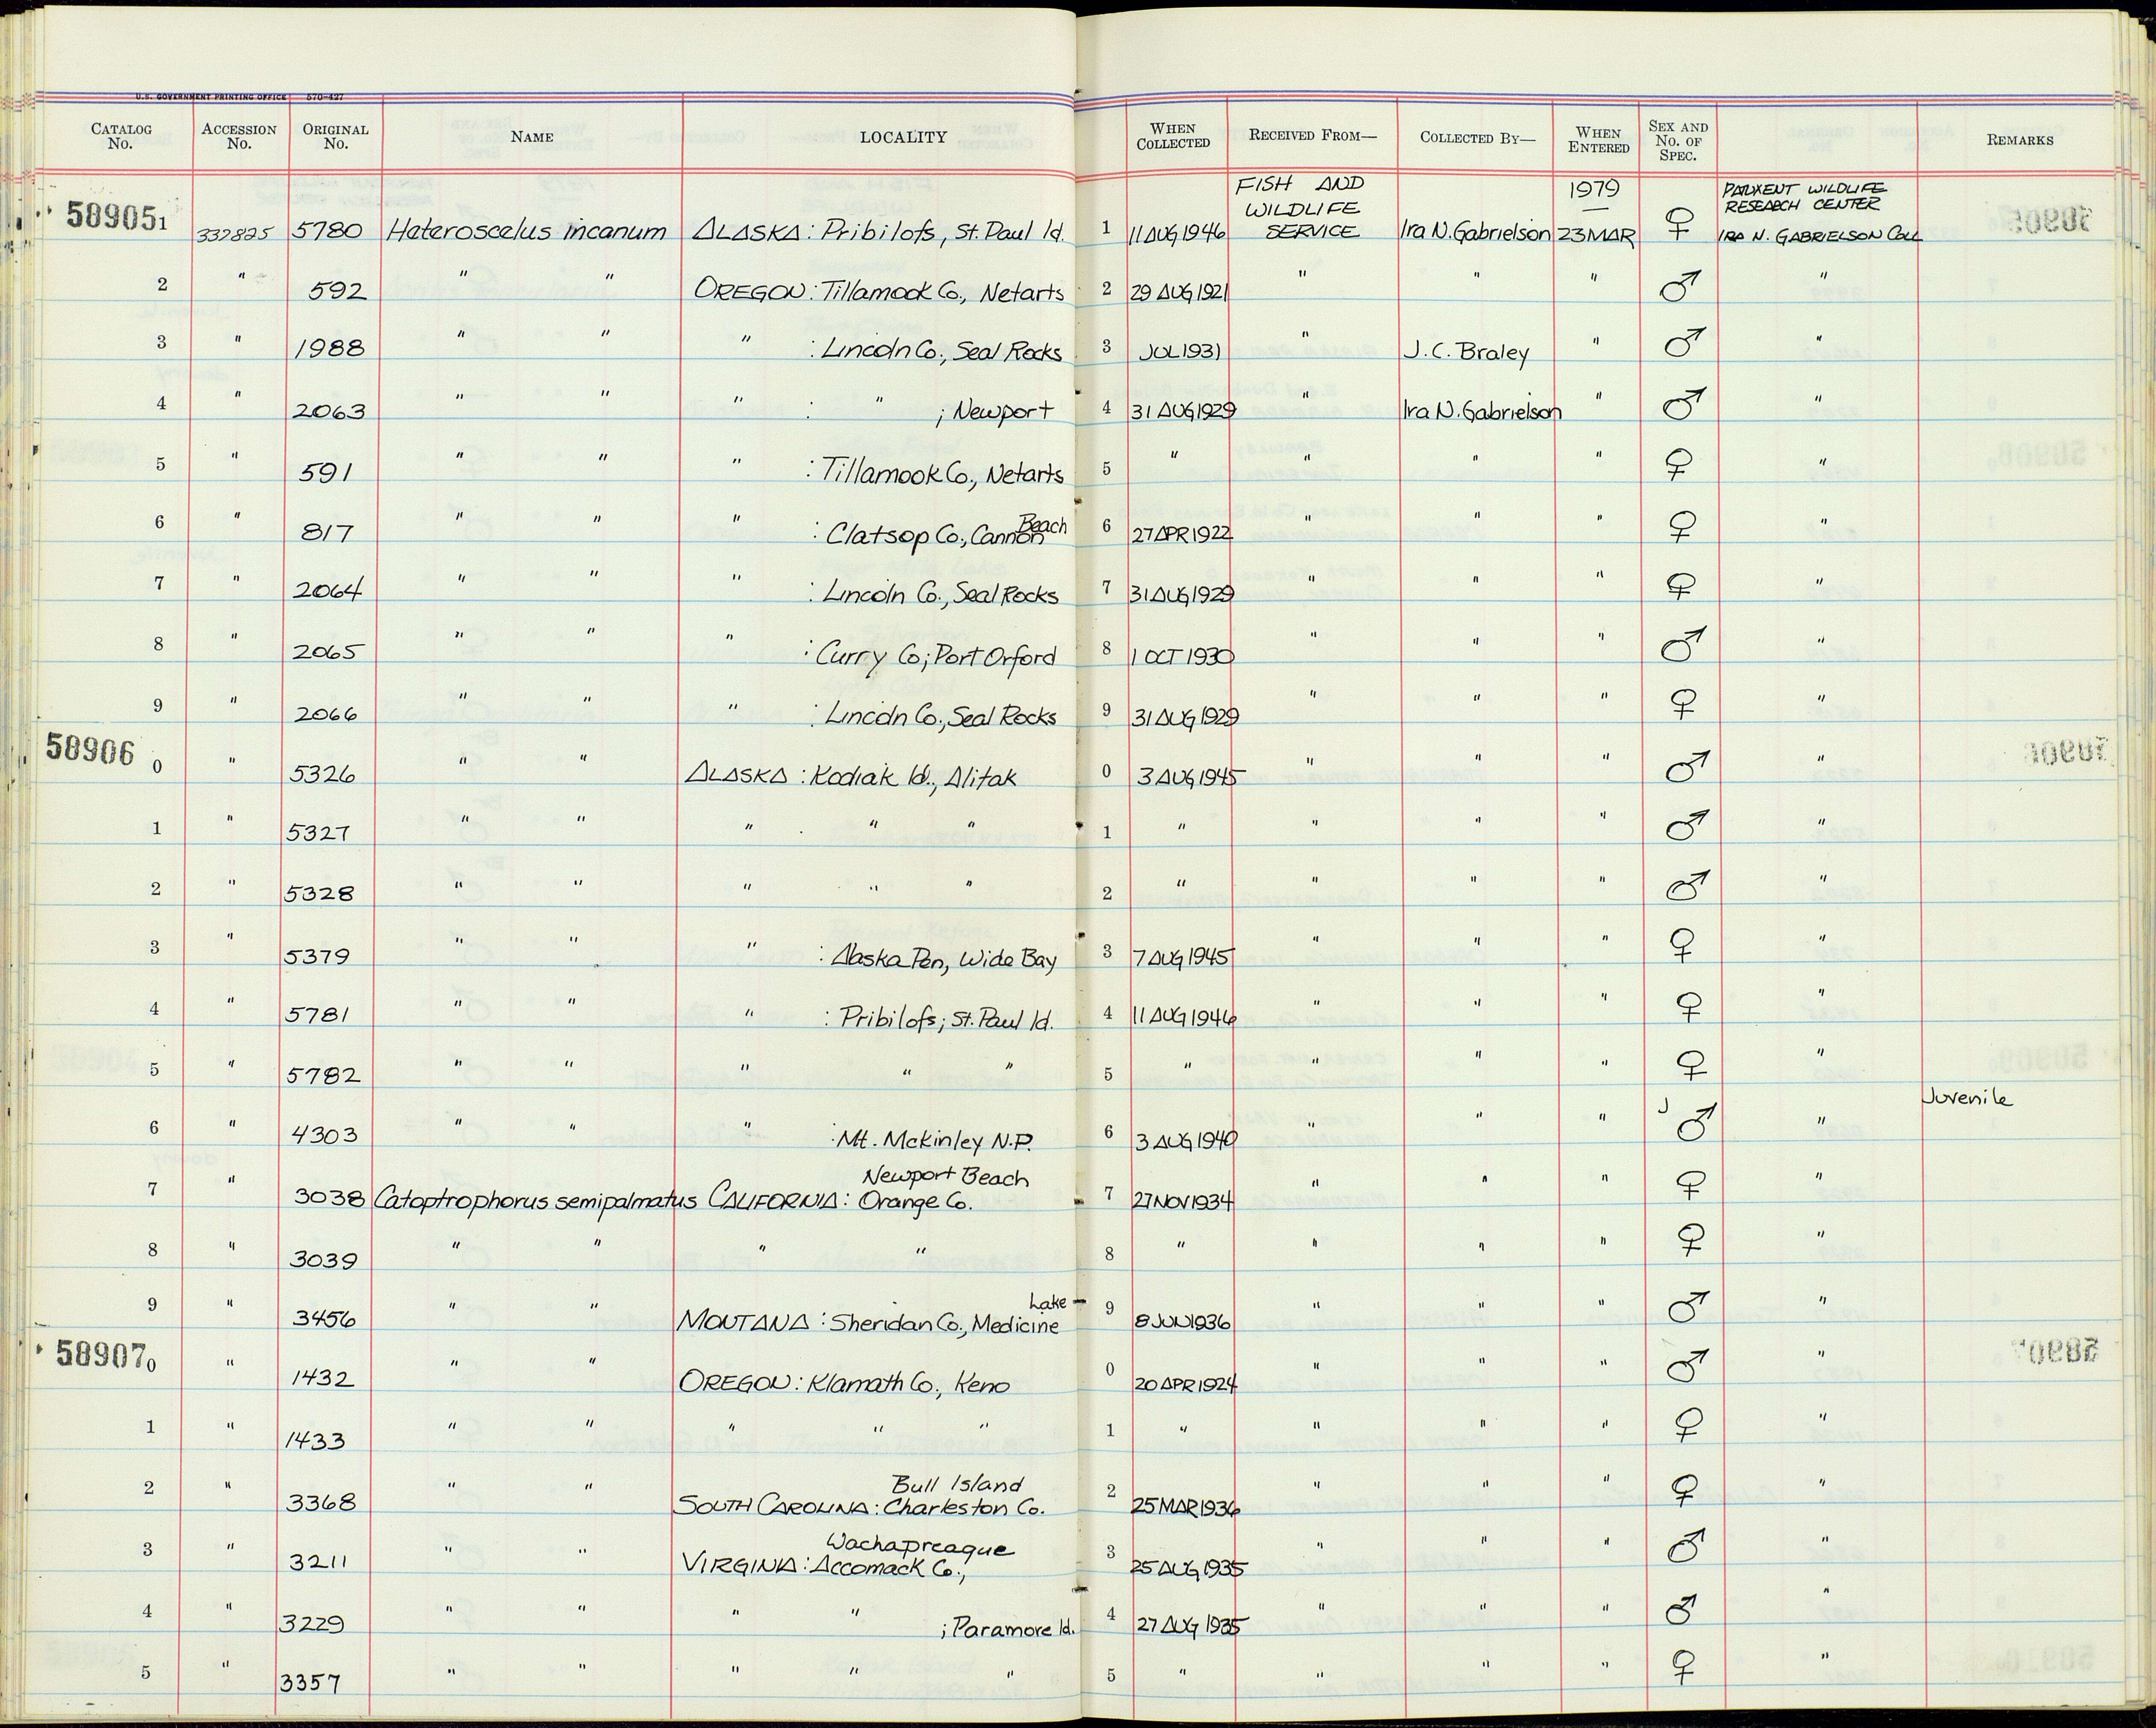 U.S. GOVERNMENT PRINTING OFFICE 570-427
CATALOG No. ACCESSION No. ORIGINAL No. NAME LOCALITY WHEN COLLECTED RECEIVED FROM— COLLECTED BY— WHEN ENTERED SEX AND No. OF SPEC. REMARKS
58905 1 332825 5780 Heteroscelus incanum ALASKA: Pribilofs, St. Paul Id. 1 11 AUG 1946 FISH AND WILDLIFE SERVICE Ira N. Gabrielson 1979 23 MAR ♀ PATUXENT WILDLIFE RESEARCH CENTER IRA N. GABRIELSON COLL
2 " 592 " " OREGON: Tillamook Co., Netarts 2 29 AUG 1921 " " " ♂ "
3 " 1988 " " " : Lincoln Co., Seal Rocks 3 JUL 1931 " J.C. Braley " ♂ "
4 " 2063 " " " : " ; Newport 4 31 AUG 1929 " Ira N. Gabrielson " ♂ "
5 " 591 " " " : Tillamook Co., Netarts 5 " " " " ♀ "
6 " 817 " " " : Clatsop Co., Cannon Beach 6 27 APR 1922 " " " ♀ "
7 " 2064 " " " : Lincoln Co., Seal Rocks 7 31 AUG 1929 " " " ♀ "
8 " 2065 " " " : Curry Co; Port Orford 8 1 OCT 1930 " " " ♂ "
9 " 2066 " " " : Lincoln Co., Seal Rocks 9 31 AUG 1929 " " " ♀ "
58906 0 " 5326 " " ALASKA: Kodiak Id., Alitak 0 3 AUG 1945 " " " ♂ "
1 " 5327 " " " " " 1 " " " " ♂ "
2 " 5328 " " " " " 2 " " " " ♂ "
3 " 5379 " " " : Alaska Pen, Wide Bay 3 7 AUG 1945 " " " ♀ "
4 " 5781 " " " : Pribilofs; St. Paul Id. 4 11 AUG 1946 " " " ♀ "
5 " 5782 " " " " " 5 " " " " ♀ "
6 " 4303 " " " : Mt. McKinley N.P. 6 3 AUG 1940 " " " J ♂ " Juvenile
7 " 3038 Catoptrophorus semipalmatus CALIFORNIA: Newport Beach Orange Co. 7 27 NOV 1934 " " " ♀ "
8 " 3039 " " " " 8 " " " " ♀ "
9 " 3456 " " MONTANA: Sheridan Co., Medicine Lake 9 8 JUN 1936 " " " ♂ "
58907 0 " 1432 " " OREGON: Klamath Co., Keno 0 20 APR 1924 " " " ♂ "
1 " 1433 " " " " " 1 " " " " ♀ "
2 " 3368 " " SOUTH CAROLINA: Bull Island Charleston Co. 2 25 MAR 1936 " " " ♀ "
3 " 3211 " " VIRGINIA: Accomack Co., Wachapreague 3 25 AUG 1935 " " " ♂ "
4 " 3229 " " " " ; Paramore Id. 4 27 AUG 1935 " " " ♂ "
5 " 3357 " " " " " 5 " " " " ♀ "